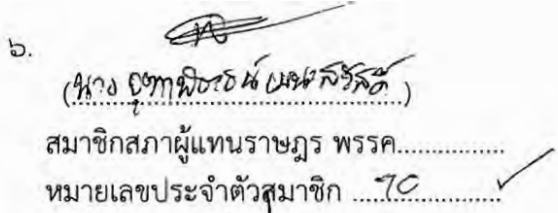 ๖.
(นาง เมนะสวัสดิ์)
สมาชิกสภาผู้แทนราษฎร พรรค................
หมายเลขประจำตัวสมาชิก ....70................